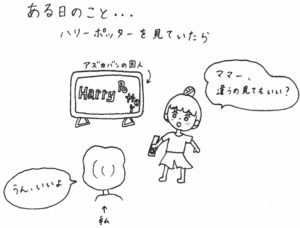 ある日のこと・・・
ハリーポッターを見ていたら
アズカバンの囚人
Harry
Potter
ママー、
違うの見てもいい？
うん、いいよ
私